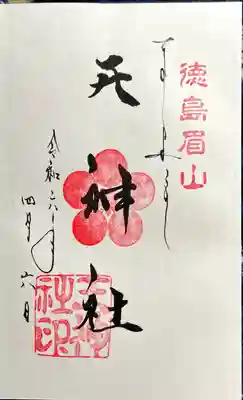 徳島眉山
奉拝
天神社
令和六年
四月六日
天神社印